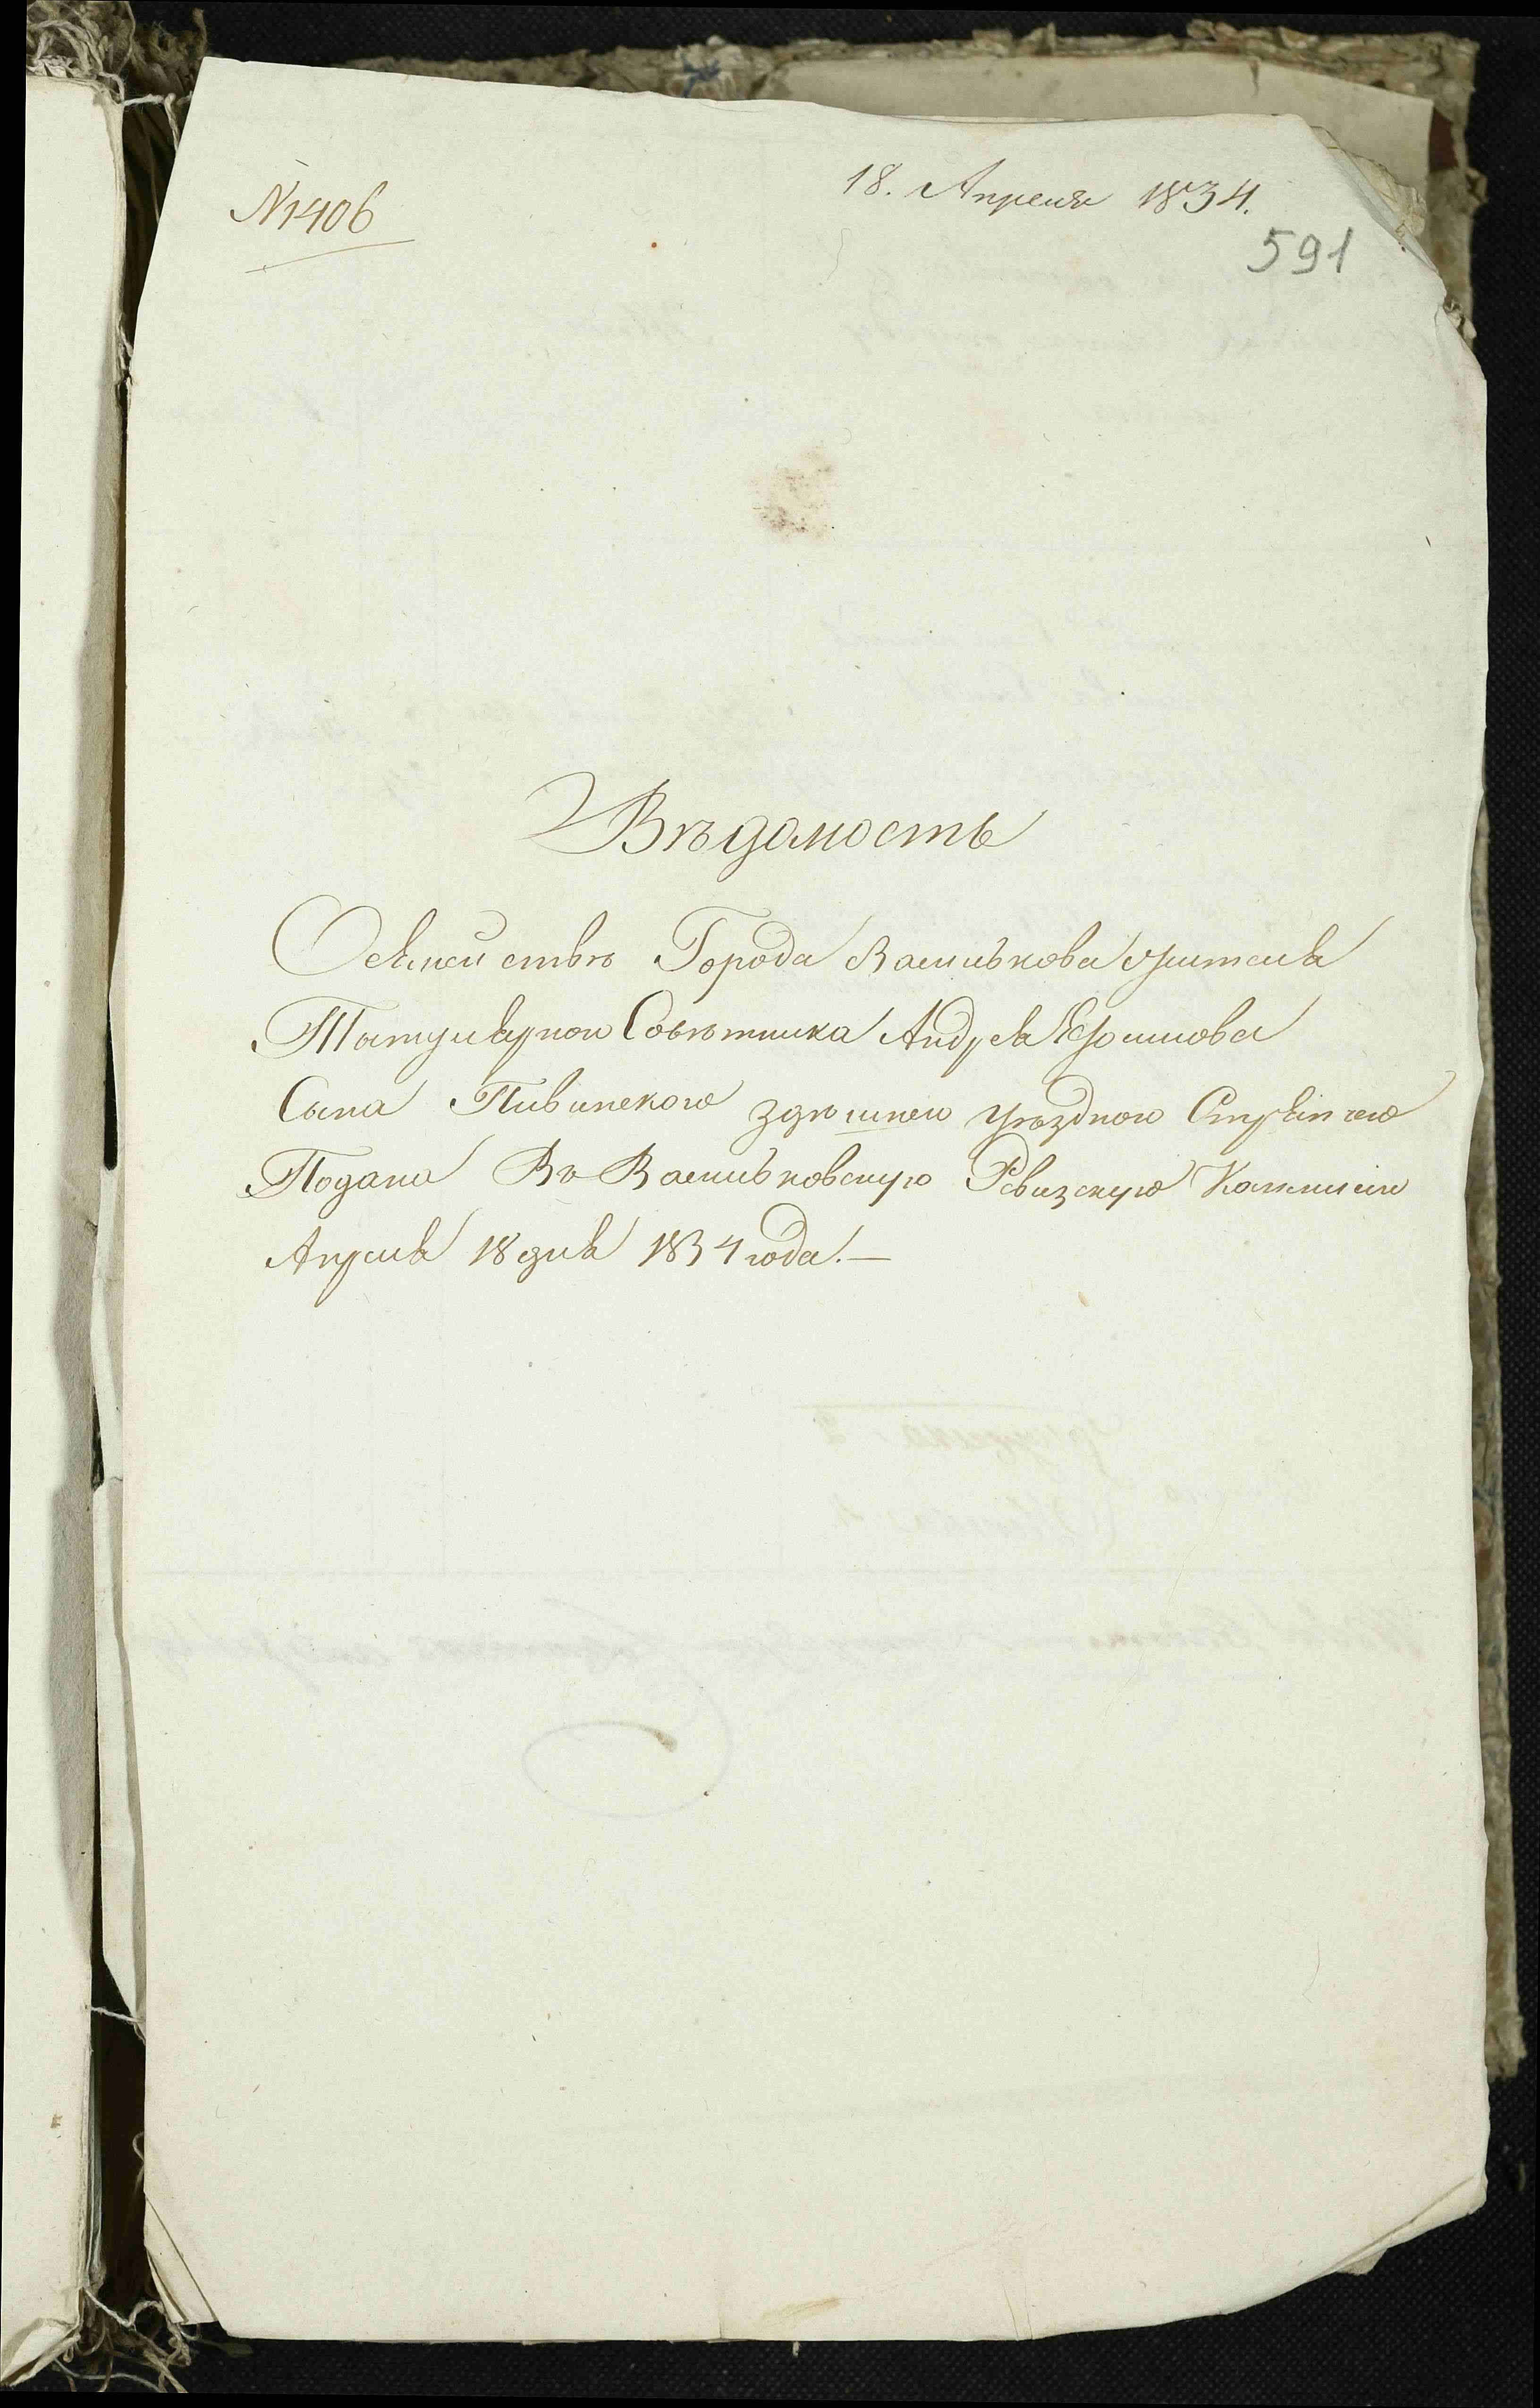 № 1406
18. Апреля 1834.
591
Вѣдомость
О семействѣ Города Василькова жителя
Титулярного Совѣтника Андрея Ефимова
Сына Пивинского здѣшнего уѣздного Стряпчего
Подана Въ Васильковскую Ревизскую Коммисию
Апреля 18 дня 1834 года. —